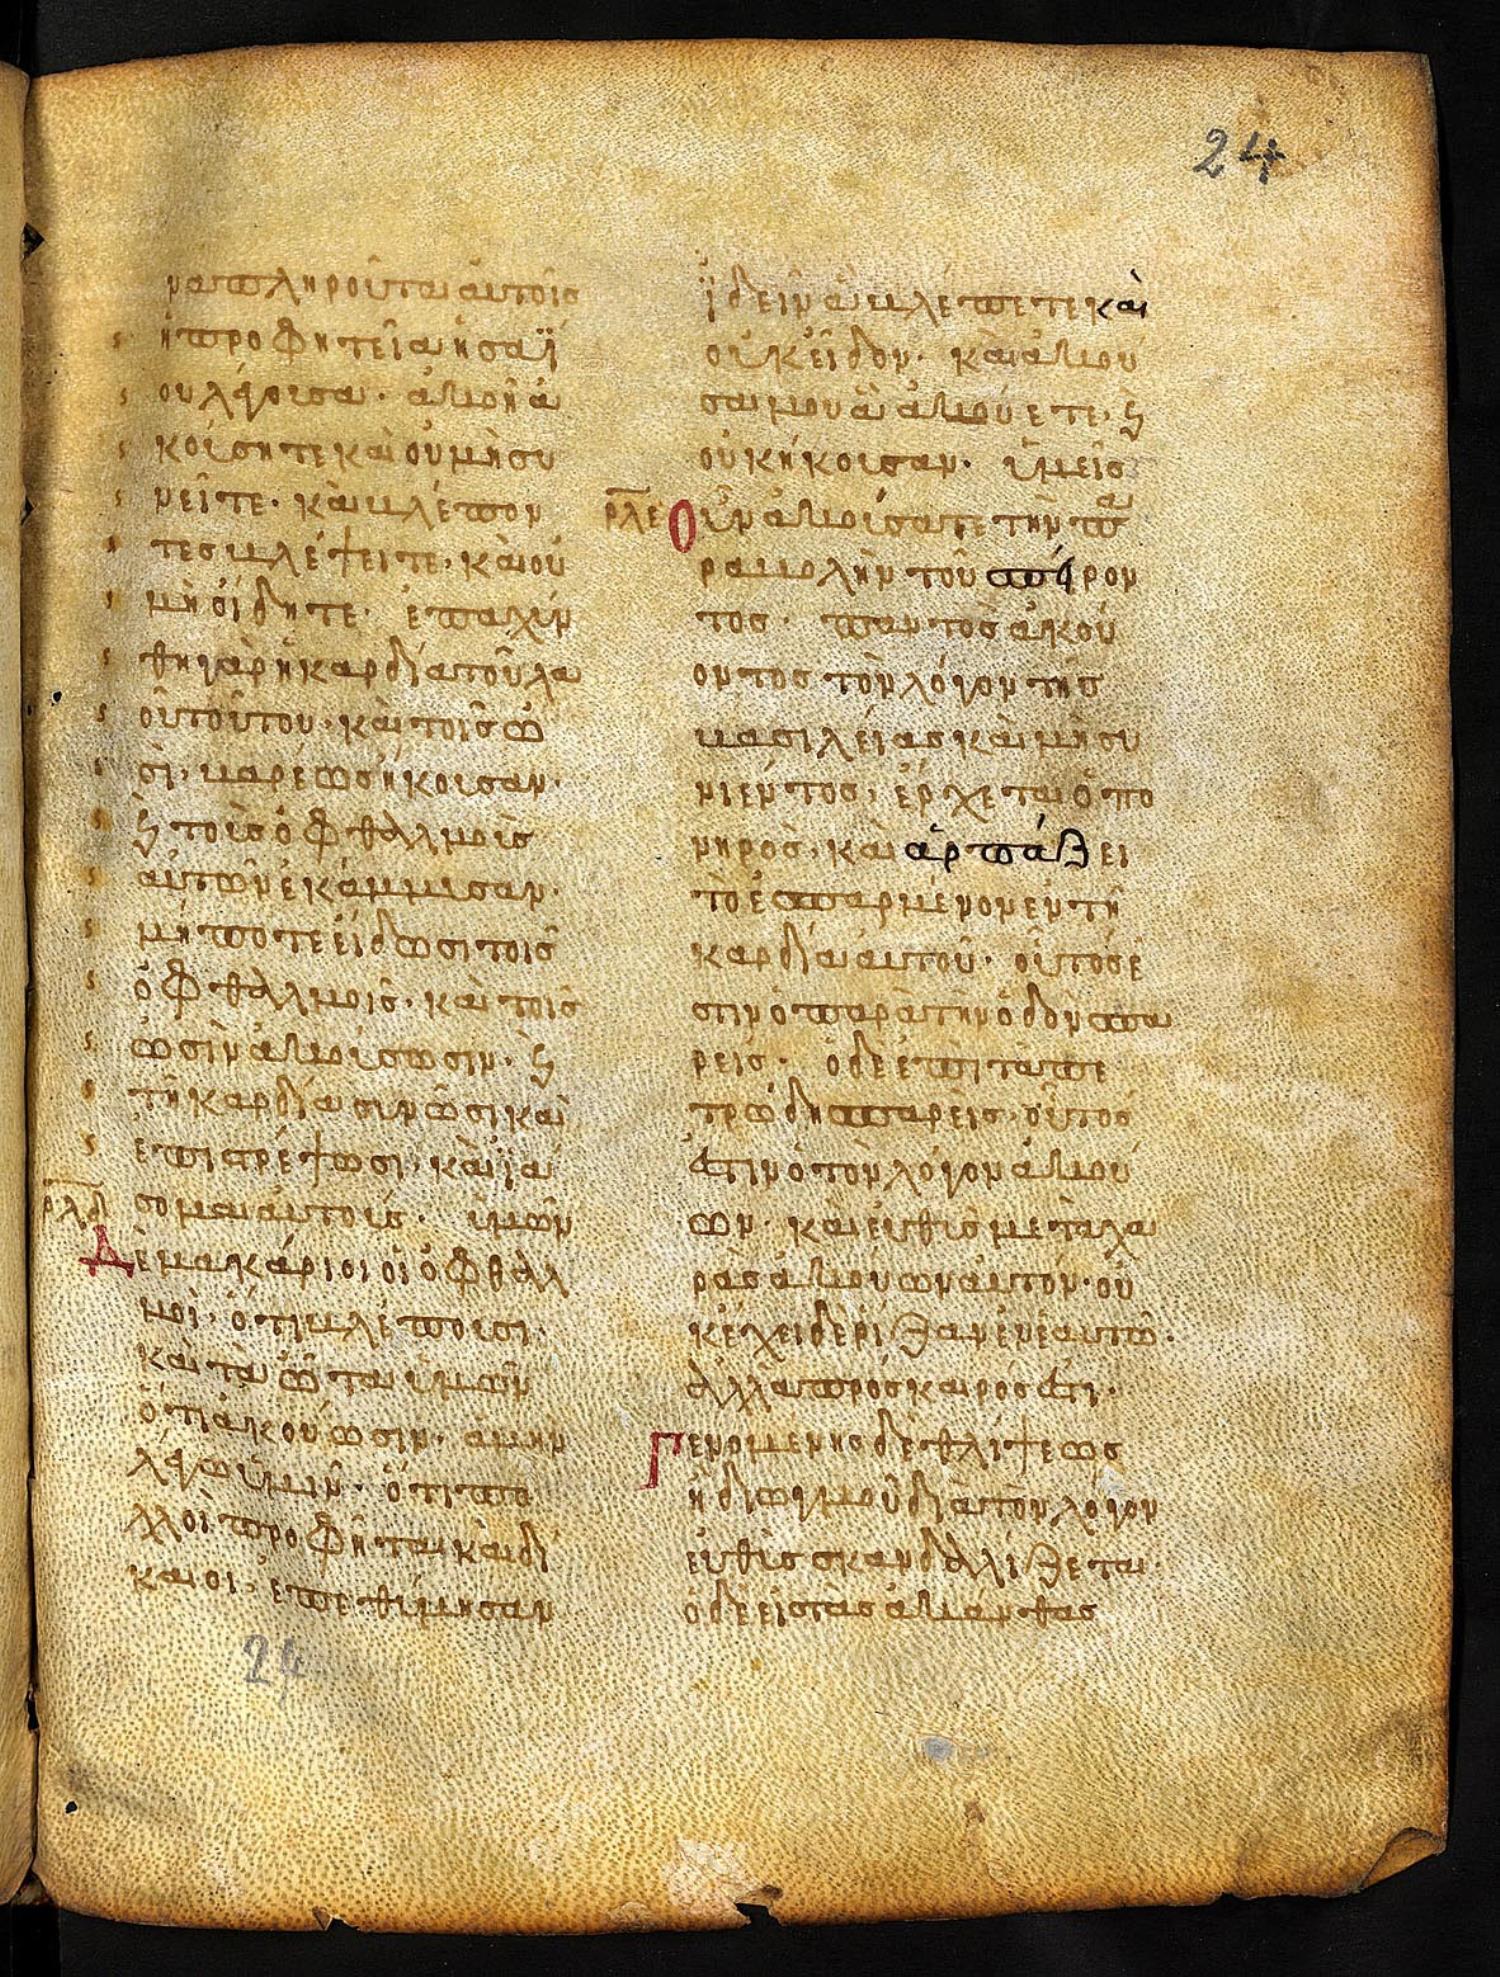 24
να πληροῦται αὐτοῖς
ἡ προφητεία ἡσαΐ
ου λέγουσα· ἀκοῆ ἀ
κούσητε καὶ οὐ μὴ συ
νεῖτε· καὶ βλέπον
τες βλέψειτε, καὶ οὐ
μὴ οἴδητε· ἐπαχύν
θη γὰρ ἡ καρδία τοῦ λα
οῦ τούτου· καὶ τοῖς ὠ
σὶ, βαρέως ἤκουσαν·
ϗ τοὺς ὀφθαλμοὺς
αὐτῶν ἐκάμμυσαν·
μή ποτε εἴδωσι τοῖς
ὀφθαλμοῖς· καὶ τοῖς
ὠσὶν ἀκούσωσιν· ϗ
τῆ καρδία συνῶσι καὶ
ἐπιστρέψωσι, καὶ ϊά
ρλδ σομαι αὐτούς· ὑμῶν
Δὲ μακάριοι οἱ ὀφθαλ
μοὶ· ὅτι βλέπουσι·
καὶ τὰ ὦτα ὑμῶν
ὅτι ἀκούωσιν· ἀμὴν
λέγω ὑμῖν· ὅτι πο
λλοὶ προφῆται καὶ δί
καιοι· ἐπεθύμησαν
24
ϊδεῖν ἃ βλέπετε καὶ
οὐκ εἶδον· καὶ ἀκού
σαι μου ἃ ἀκούετε· ϗ
οὐκ ἤκουσαν· ὑμεῖς
ρλε Οὖν ἀκούσατε τὴν πα
ραβολὴν τοῦ σπείρον
τος· παντὸς ἀκού
οντος τὸν λόγον τῆς
βασιλείας καὶ μὴ συ
νιέντος, ἔρχεται ὁ πο
νηρὸς, καὶ ἁρπάζει
τὸ ἐσπαρμένον ἐν τῆ
καρδία αὐτοῦ· οὗτός ἐ
στιν ὁ παρὰ τὴν ὁδὸν σπα
ρείς· ὁ δὲ ἐπὶ τὰ πε
τρώδη σπαρεὶς· οὗτος
ἐστιν ὁ τὸν λόγον ἀκού
ων· καὶ εὐθὺς μετὰ χα
ρᾶς ἀκούων αὐτόν· οὐ
κ ἔχει δὲ ῥίζαν ἐν ἑαυτῶ·
ἀλλὰ πρόσκαιρός ἐστι·
Γενομένης δὲ θλίψεως
ἢ διωγμοῦ διὰ τὸν λόγον
εὐθὺς σκανδαλίζεται·
ὁ δὲ εἰς τὰς ἀκάνθας